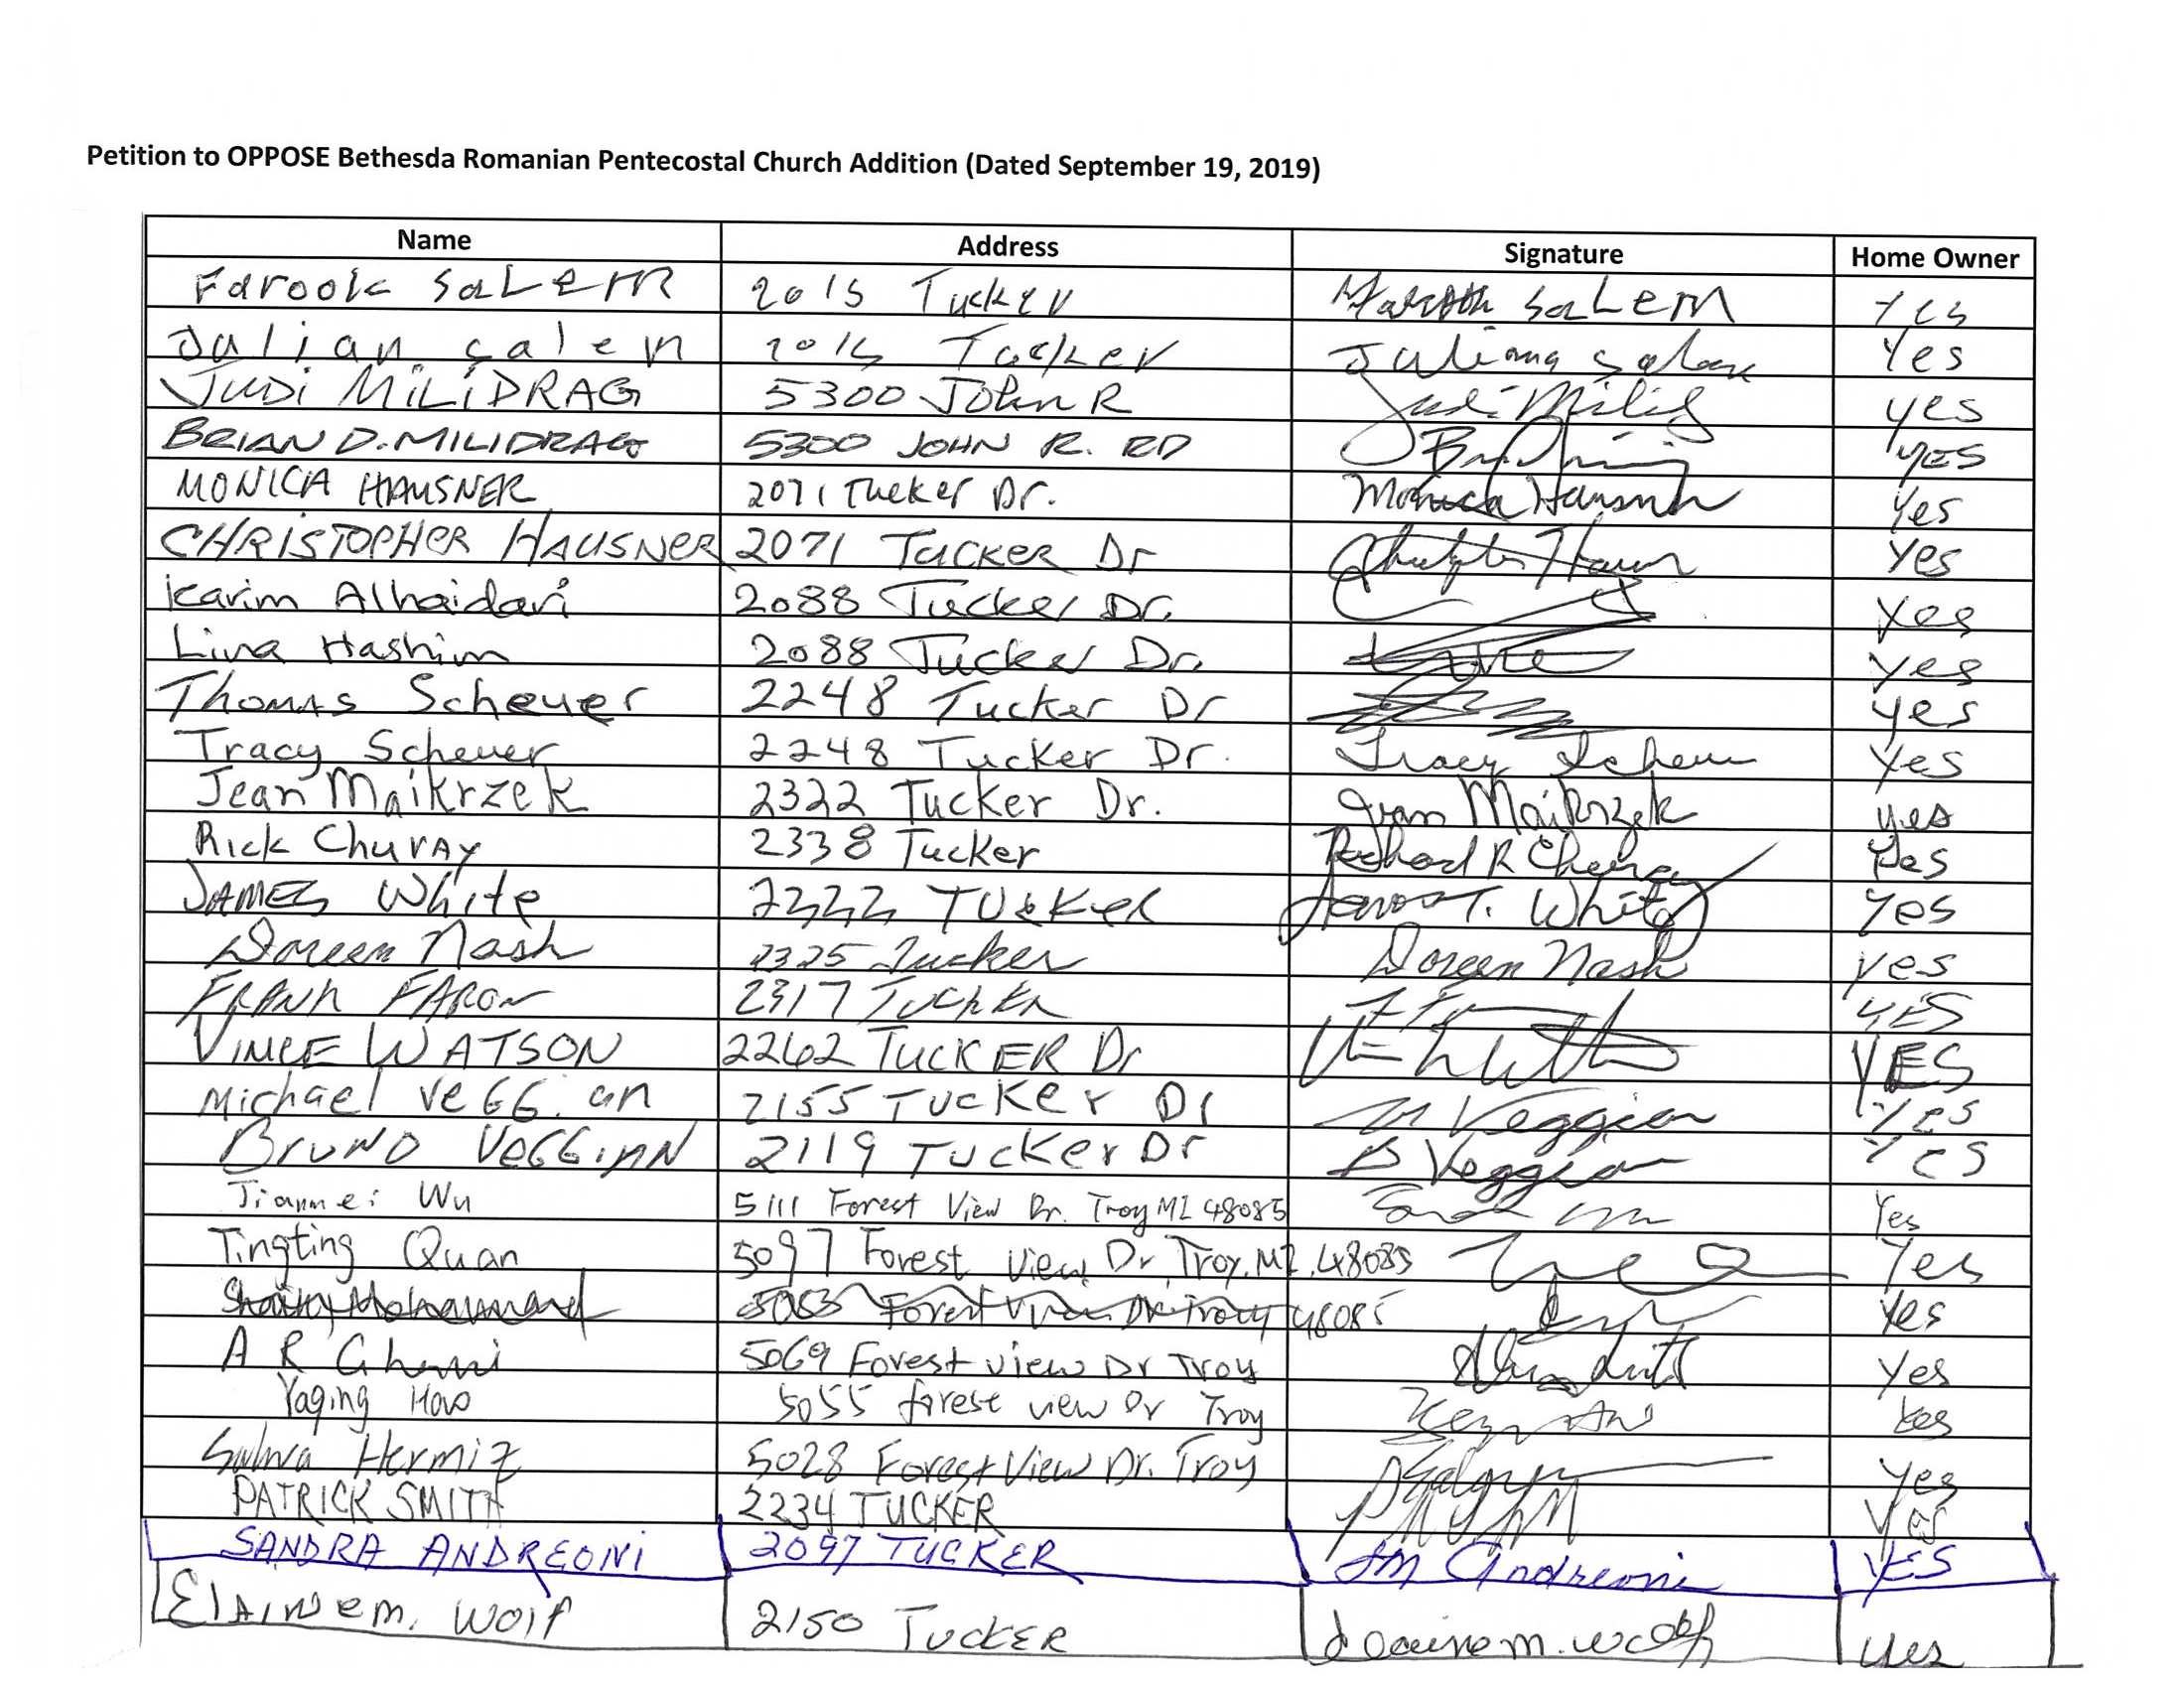 Petition to OPPOSE Bethesda Romanian Pentecostal Church Addition (Dated September 19, 2019)
Name Address Signature Home Owner
Farook SaLEM 2015 Tucker SaLEM Yes
Julian Salem 2015 Tucker Juliana Yes
JUDi MiLiDRAG 5300 John R Judi Milid yes
BRIAN D. MILIDRAG 5300 JOHN R. RD YES
MONICA HAUSNER 2071 Tucker Dr. Monica Yes
CHRISTOPHER HAUSNER 2071 TUCKER Dr Yes
Karim Alhaidari 2088 Tucker Dr. Yes
Lina Hashim 2088 Tucker Dr. Yes
THomas Scheuer 2248 Tucker Dr yes
Tracy Scheuer 2248 Tucker Dr. Tracy Yes
Jean Maikrzek 2322 Tucker Dr. Jean Maikrzek yes
Rick Churay 2338 Tucker Richard R Churay Yes
JAMES White TUcKer White Yes
Doreen Nash 2325 Tucker Doreen Nash yes
FRANK FARON 2317 YES
VINCE WATSON 2262 TUCKER Dr YES
Michael VeGG.an 2155 TUCKer Dr M Veggian Yes
BRUNO VeGGiAN 2119 TUCKer Dr B Veggian Yes
Jianmei Wu 5111 Forest View Dr. Troy MI 48085 Yes
Tingting Quan 5097 Forest View Dr Troy, MI. 48085 Yes
48085 Yes
A R Ghani 5069 Forest view Dr Troy Yes
Yaqing Hao 5055 forest view Dr Troy Yes
Salwa Hermiz 5028 Forest View Dr. Troy Yes
PATRICK SMITH 2234 TUCKER Yes
SANDRA ANDREONI 2097 TUCKER SM Andreoni YES
ElAINe m. Wolf 2150 TUCKER m. Wolf Yes